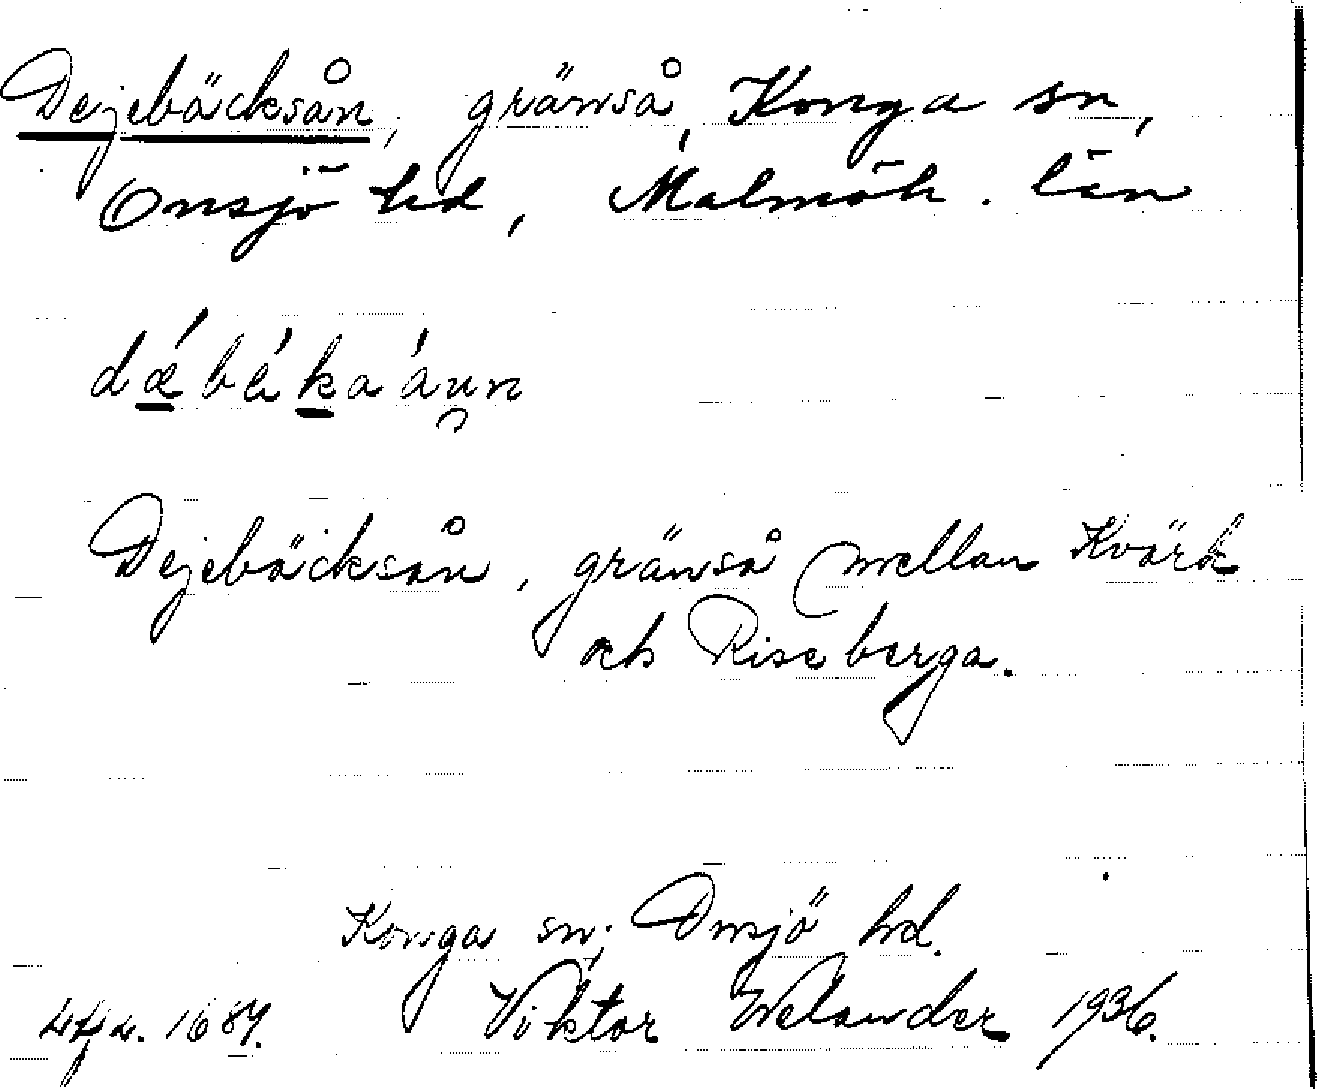 Dejebäcksån, gränså, Konga sn,
Onsjö hd, Malmöh. län
Dejebäcksån, gränså mellan Kvärk
och Riseberga.
Konga sn; Onsjö hd.
1687. Viktor Welander 1936.